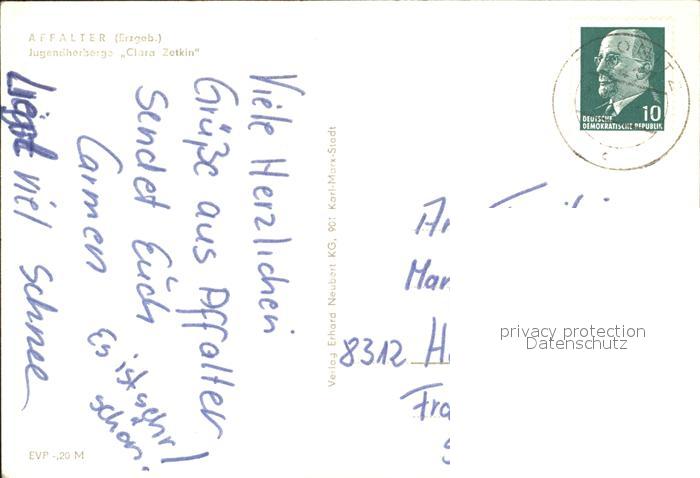 AFFALTER (Erzgeb.)
Jugendherberge „Clara Zetkin"
Viele Herzlichen
Grüße aus Affalter
Sendet Euch
Carmen
Es ist sehr
schön. !
Liegt viel Schnee
EVP -,20 M
Verlag Erhard Neubert KG, 901 Karl-Marx-Stadt
DEUTSCHE
DEMOKRATISCHE REPUBLIK
10
An
8312
privacy protection
Datenschutz